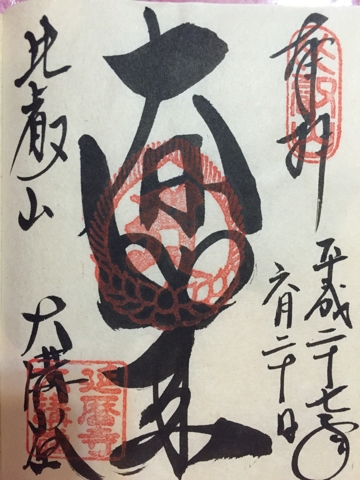 奉拝
平成二十七年
六月二十日
大日如来
比叡山
大講堂
延暦寺